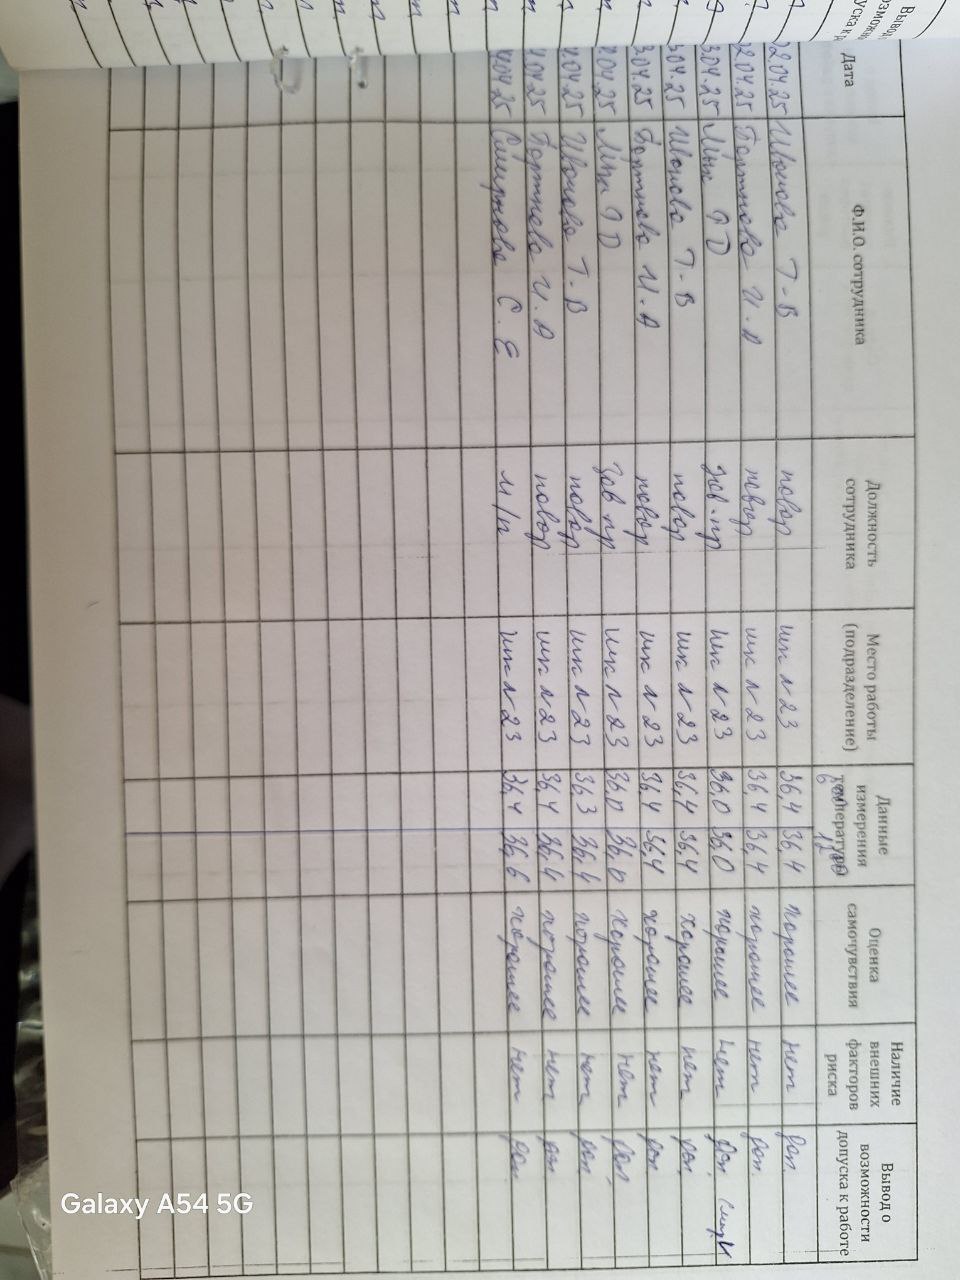 Дата Ф.И.О. сотрудника Должность сотрудника Место работы (подразделение) Данные измерения температуры Оценка самочувствия Наличие внешних факторов риска Вывод о возможности допуска к работе
02.04.25 Иванова Т-В повар шк N 23 36,4 36,4 хорошее нет доп.
02.04.25 И.А повар шк N 23 36,4 36,4 хорошее нет доп.
3.04.25 зав.пр шк N 23 36,0 36,0 хорошее нет доп.
3.04.25 Иванова Т-В повар шк N 23 36,4 36,4 хорошее нет доп.
3.04.25 И.А повар шк N 23 36,4 36,4 хорошее нет доп.
4.04.25 зав пр шк N 23 36,0 36,0 хорошее нет доп.
4.04.25 Иванова Т.В повар шк N 23 36,3 36,4 хорошее нет доп.
4.04.25 И.А повар шк N 23 36,4 36,4 хорошее нет доп.
4.04.25 Смирнова С.Е м/п шк N 23 36,4 36,6 хорошее нет доп.
Galaxy A54 5G